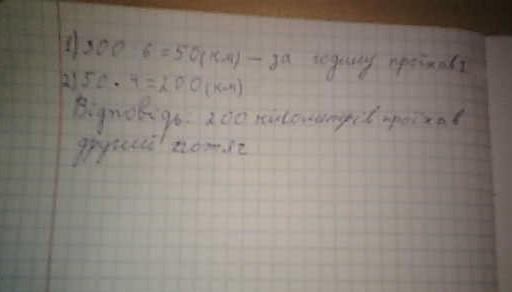 1) 300 : 6 = 50 (км) – за годину проїхав 1
2) 50 • 4 = 200 (км)
Відповідь: 200 кілометрів проїхав
другий потяг